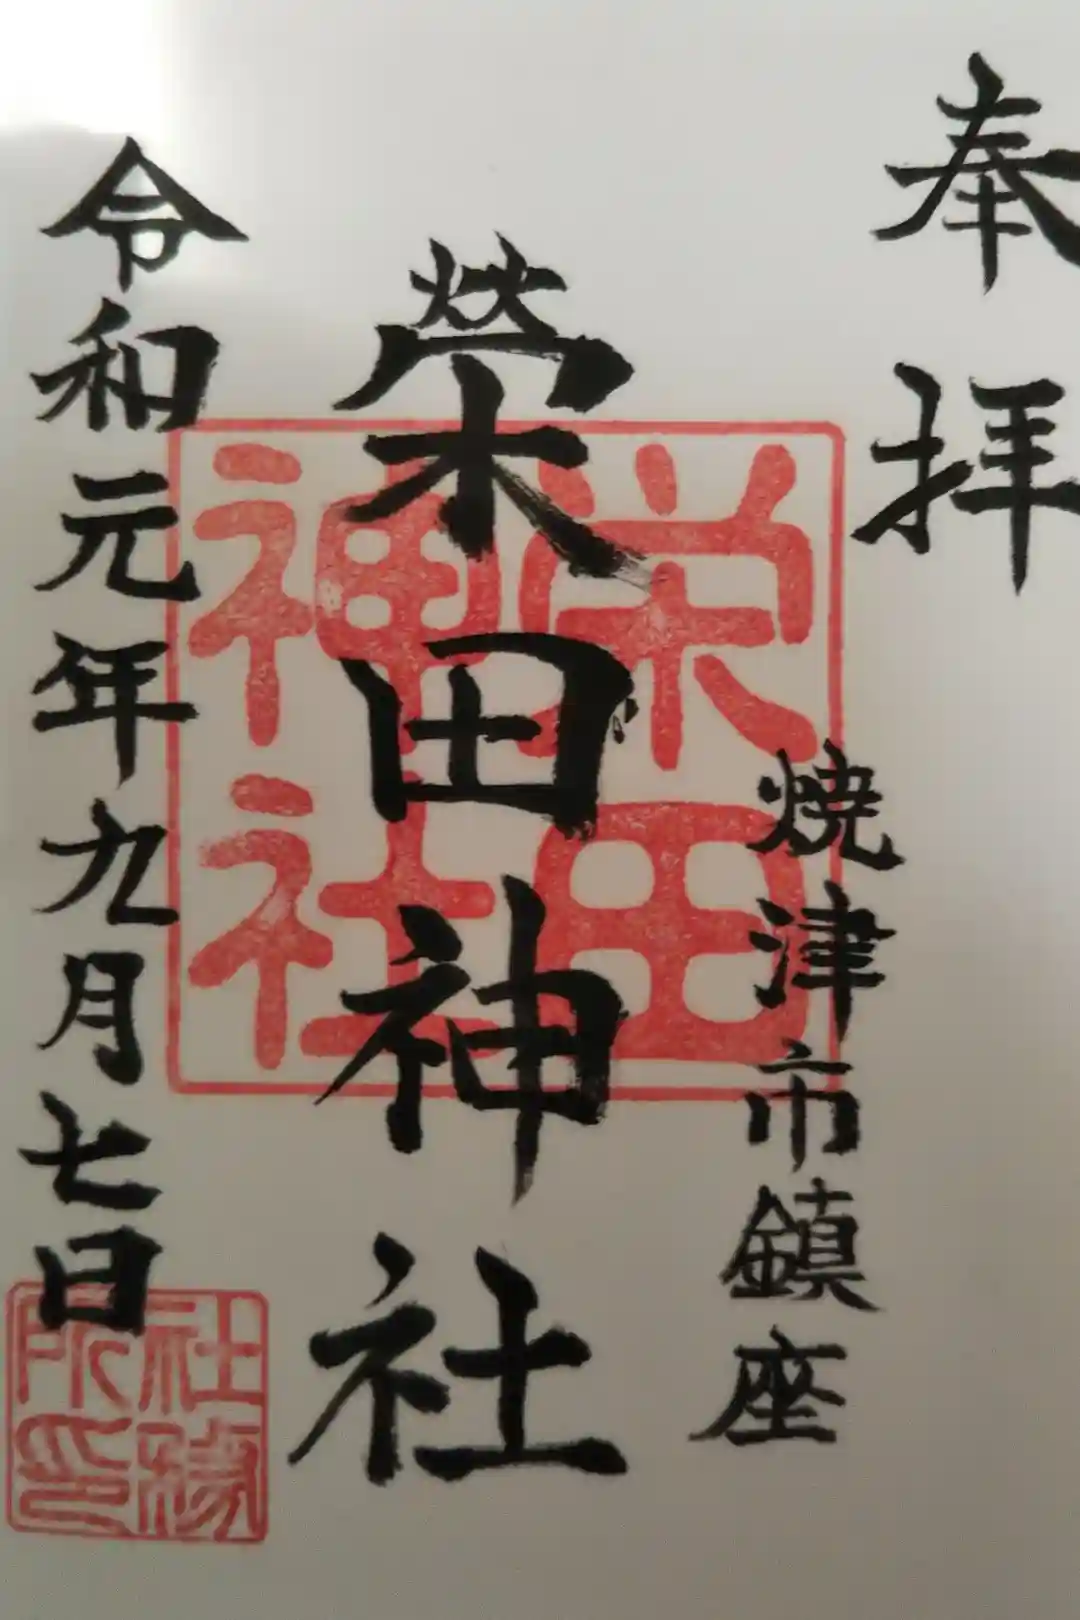 奉拝
焼津市鎮座
榮田神社
栄田
神社
令和元年九月七日
社務
所印